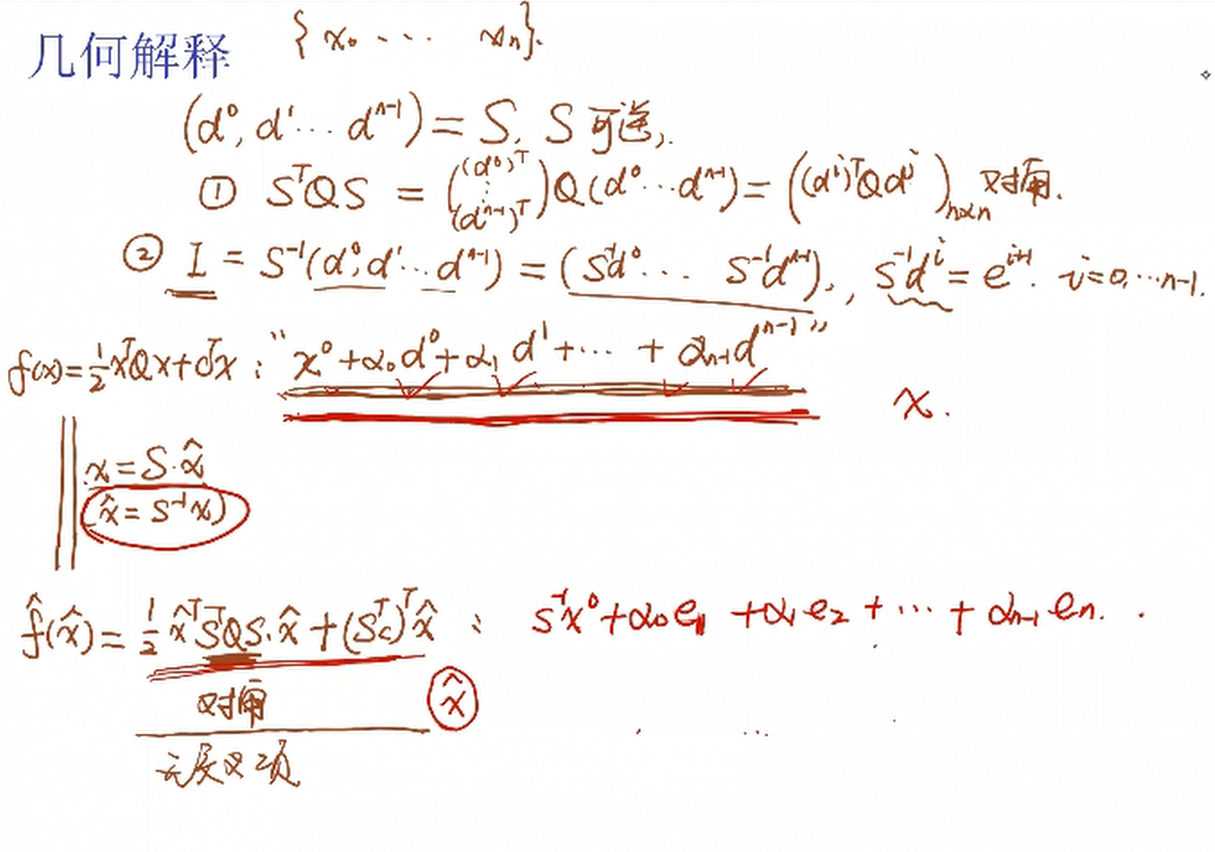 几何解释
{x₀ ··· xₙ}.
(d⁰, d¹ ··· dⁿ⁻¹) = S. S 可逆,.
① SᵀQS = ((d⁰)ᵀ ⋮ (dⁿ⁻¹)ᵀ) Q (d⁰ ··· dⁿ⁻¹) = ((dⁱ)ᵀQdʲ)ₙₓₙ 对角.
② I = S⁻¹(d⁰, d¹ ··· dⁿ⁻¹) = (S⁻¹d⁰ ··· S⁻¹dⁿ⁻¹)., S⁻¹dⁱ = eⁱ⁺¹. i=0, ···n-1.
f(x) = ½xᵀQx + cᵀx : "x⁰ + α₀d⁰ + α₁d¹ + ··· + αₙ₋₁dⁿ⁻¹"
x.
x = S·x̂
(x̂ = S⁻¹x)
f̂(x̂) = ½x̂ᵀSᵀQS·x̂ + (Sᵀc)ᵀx̂ : S⁻¹x⁰ + α₀e₁ + α₁e₂ + ··· + αₙ₋₁eₙ.
对角
x̂
无交叉项